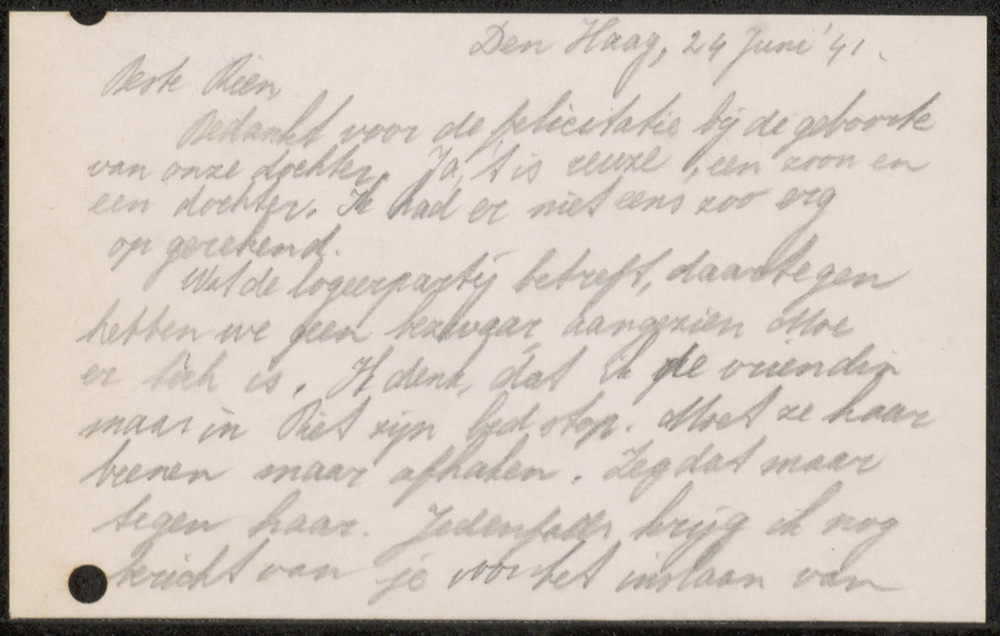 Den Haag, 24 Juni '41.
Beste Rien,
Bedankt voor de felicitatie bij de geboorte
van onze dochter. Ja, 't is reuze, een zoon en
een dochter. Ik had er niet eens zoo erg
op gerekend.
Wat de logeerpartij betreft, daartegen
hebben we geen bezwaar, aangezien Moe
er toch is. Ik denk, dat ik je vriendin
maar in Piet zijn bed stop. Moet ze haar
beenen maar afhalen. Zeg dat maar
tegen haar. Jedenfalls krijg ik nog
bericht van je voor het inslaan van